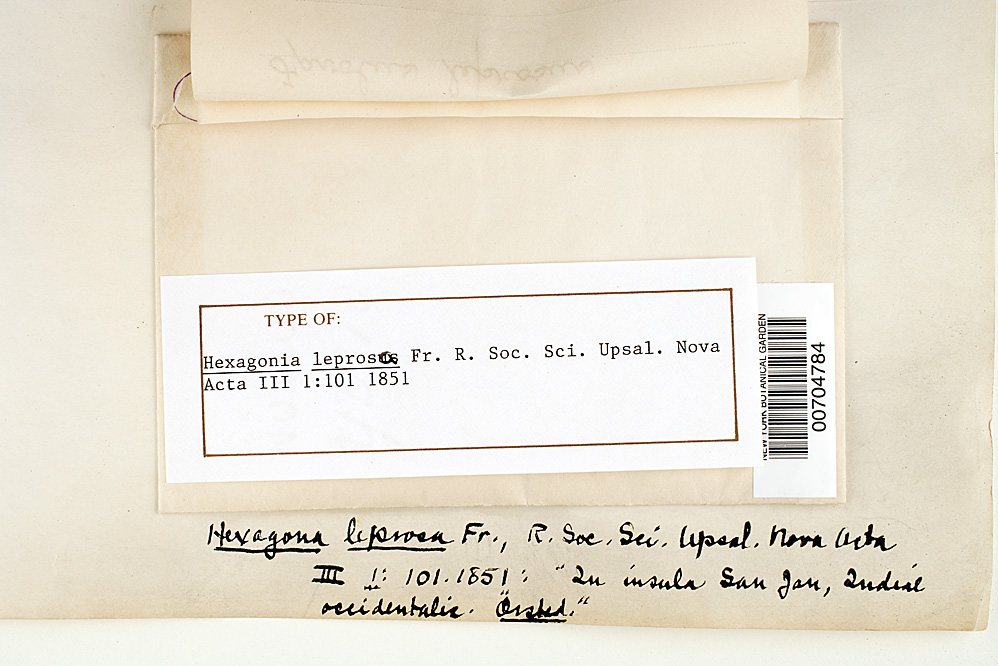 TYPE OF:
Hexagonia leprosa Fr. R. Soc. Sci. Upsal. Nova
Acta III 1:101 1851
NEW YORK BOTANICAL GARDEN
00704784
Hexagona leprosa Fr., R. Soc. Sci. Upsal. Nova Acta
III 1: 101. 1851: "In insula San Jan, Indiae
occidentalis. Örsted."